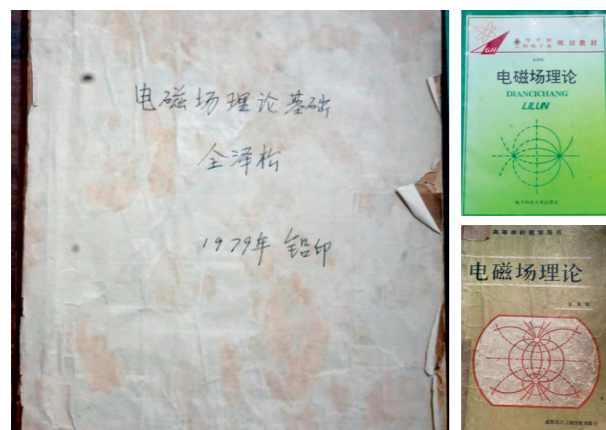 电磁场理论基础
全泽松
1979年 铅印
规划教材
电磁场理论
DIANCICHANG
LILUN
电子科技大学出版社
高等学校教学用书
电磁场理论